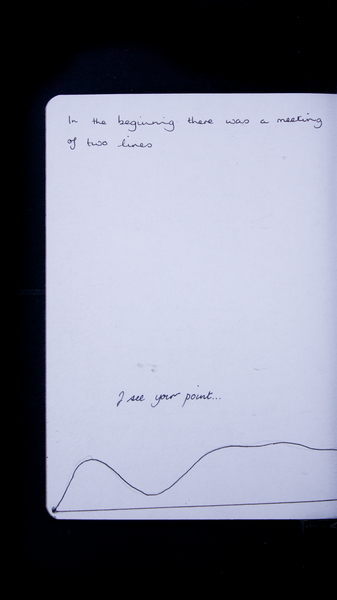 In the beginning there was a meeting
of two lines
I see your point...